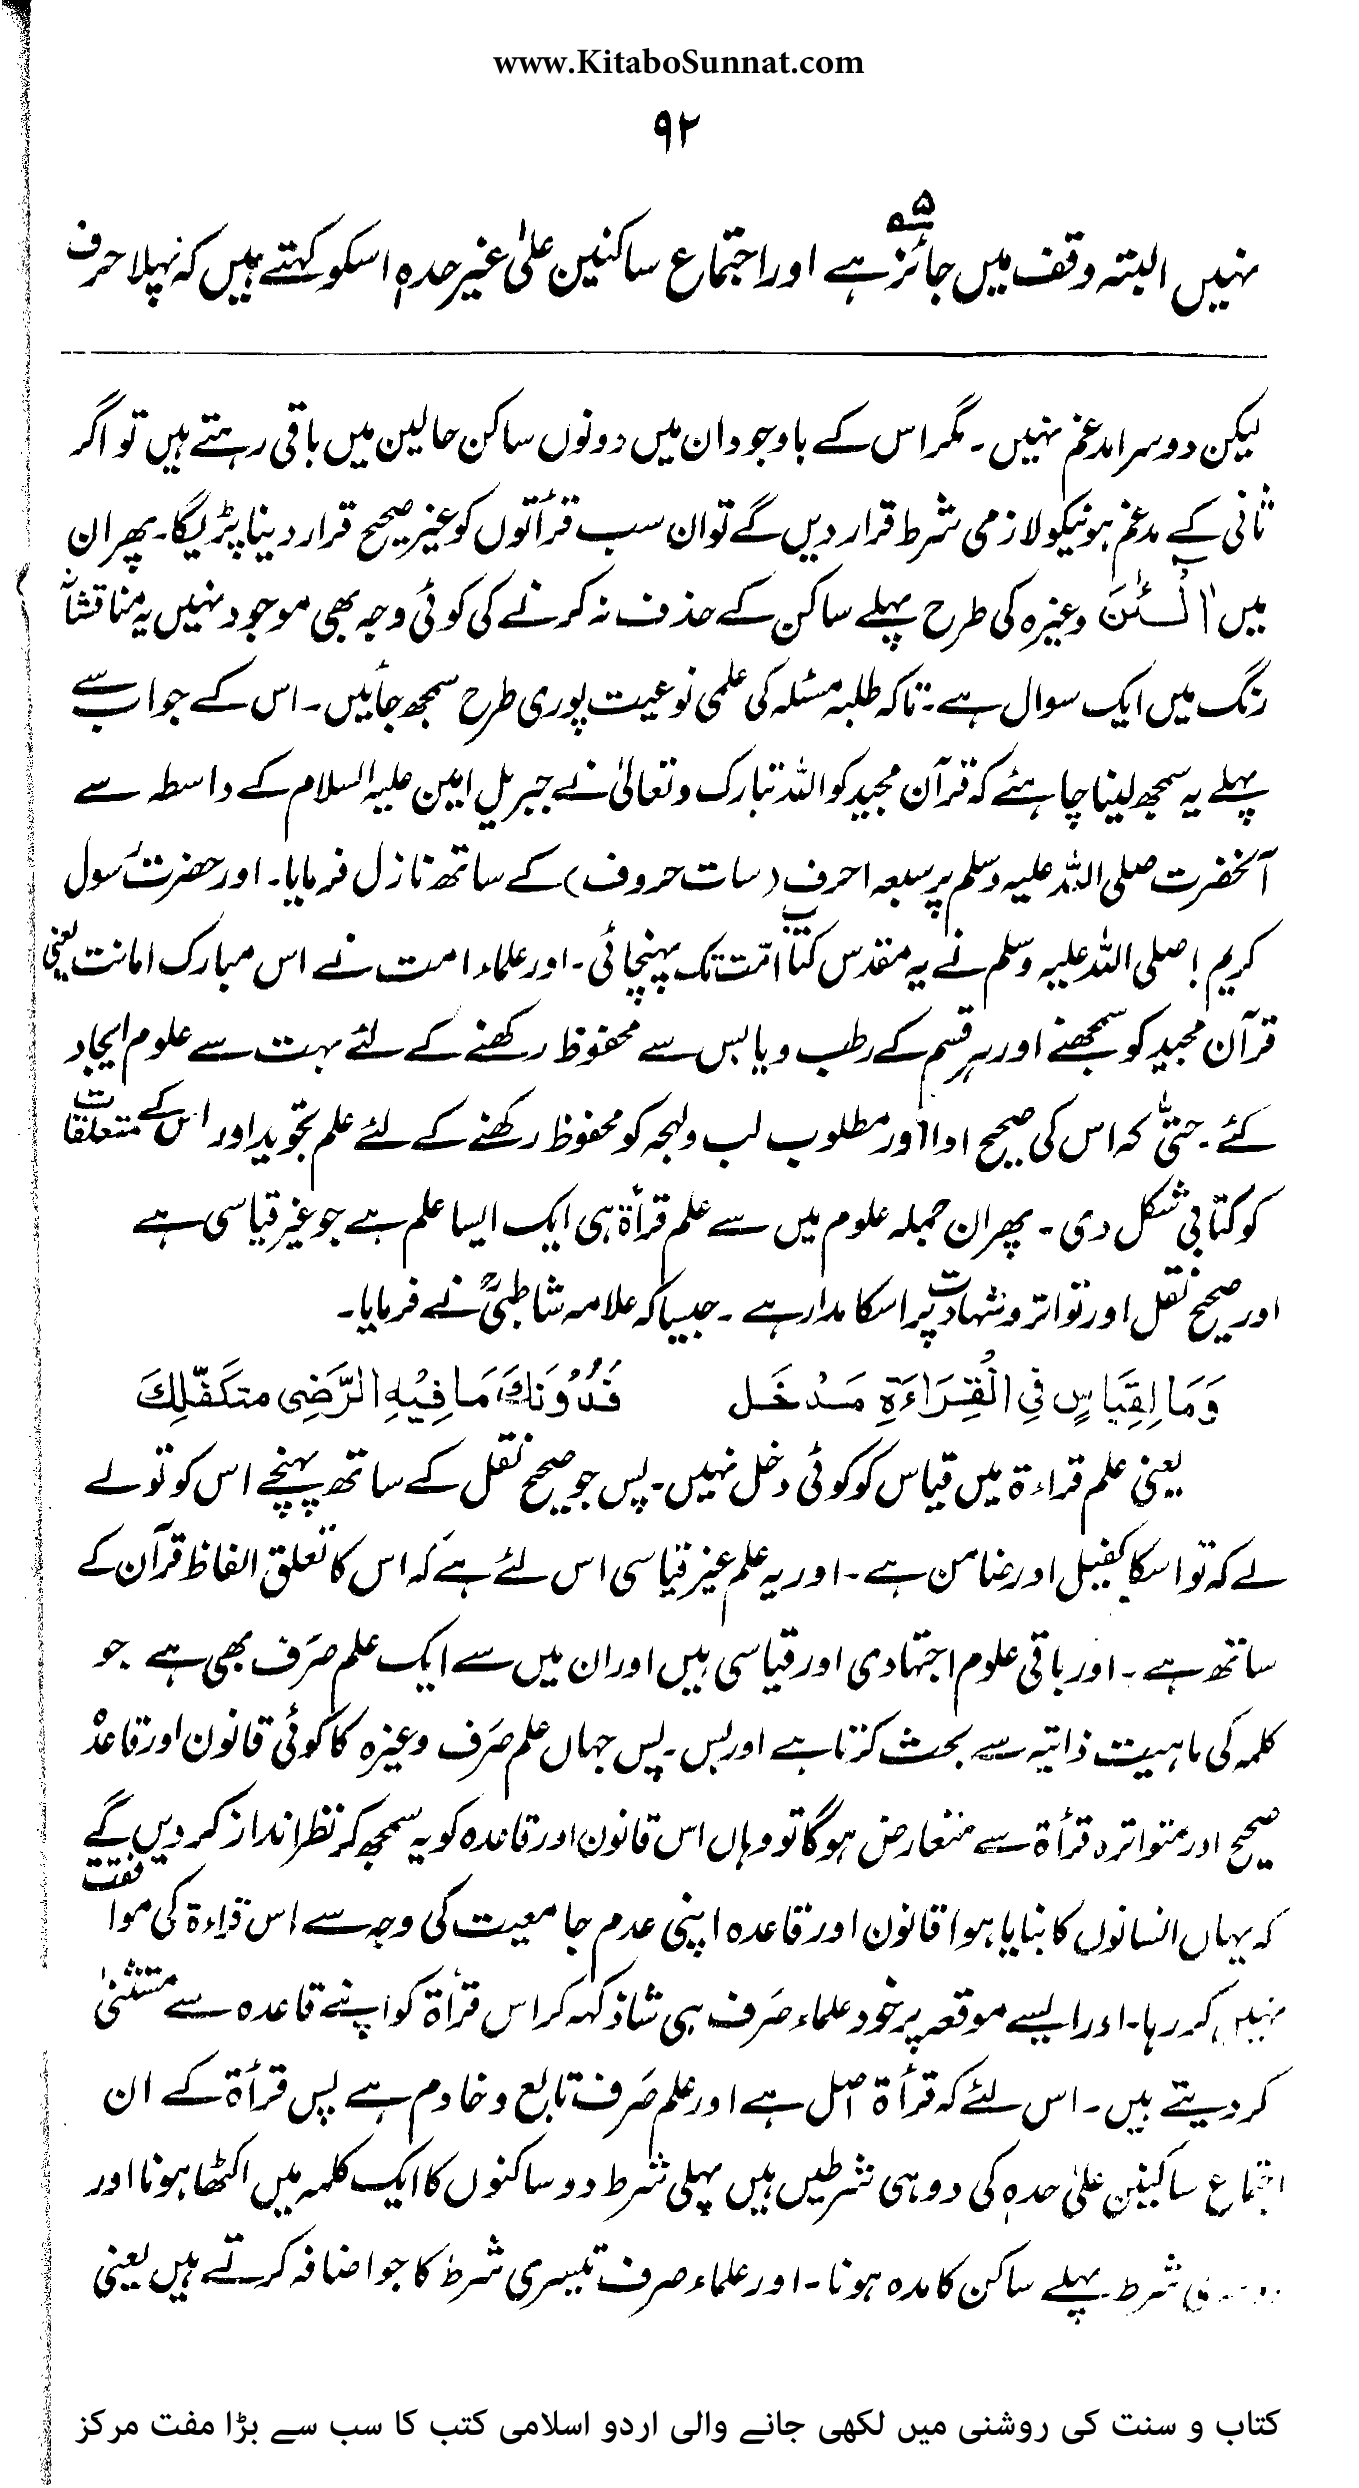 www.KitaboSunnat.com
۹۲
نہیں البتہ وقف میں جائز ہے ۵ اور اجتماع ساکنین علیٰ غیر حدہٖ اسکو کہتے ہیں کہ پہلا حرف
لیکن دوسرا مدغم نہیں۔ مگر اس کے باوجود ان میں دونوں ساکن حالین میں باقی رہتے ہیں تو اگر
ثانی کے مدغم ہونیکو لازمی شرط قرار دیں گے تو ان سب قرأتوں کو غیر صحیح قرار دینا پڑیگا۔ پھر ان
میں آلْـٰٔنَ وغیرہ کی طرح پہلے ساکن کے حذف نہ کرنے کی کوئی وجہ بھی موجود نہیں یہ مناقشانہ
رنگ میں ایک سوال ہے۔ تاکہ طلبہ مسئلہ کی علمی نوعیت پوری طرح سمجھ جائیں۔ اس کے جواب سے
پہلے یہ سمجھ لینا چاہئے کہ قرآن مجید کو اللہ تبارک وتعالیٰ نے جبریل امین علیہ السلام کے واسطہ سے
آنحضرت صلی اللہ علیہ وسلم پر سبعہ احرف (سات حروف) کے ساتھ نازل فرمایا۔ اور حضرت رسول
کریم صلی اللہ علیہ وسلم نے یہ مقدس کتاب امّت تک پہنچائی۔ اور علماء امت نے اس مبارک امانت یعنی
قرآن مجید کو سمجھنے اور ہر قسم کے رطب ویابس سے محفوظ رکھنے کے لئے بہت سے علوم ایجاد
کئے۔ حتیّٰ کہ اس کی صحیح ادا اور مطلوب لب ولہجہ کو محفوظ رکھنے کے لئے علم تجوید اور اس کے متعلقات
کو کتابی شکل دی۔ پھر ان جملہ علوم میں سے علم قرأۃ ہی ایک ایسا علم ہے جو غیر قیاسی ہے
اور صحیح نقل اور تواتر وشہادت پر اسکا مدار ہے۔ جیسا کہ علامہ شاطبیؒ نے فرمایا۔
وَمَا لِقِیَاسٍ فِی الْقِرَاءَۃِ مَدْخَل فَدُوْنَكَ مَا فِیْهِ الرَّضٰی متکَفّلِكَ
یعنی علم قراءۃ میں قیاس کو کوئی دخل نہیں۔ پس جو صحیح نقل کے ساتھ پہنچے اس کو تو لے
لے کہ تو اسکا کفیل اور ضامن ہے۔ اور یہ علم غیر قیاسی اس لئے ہے کہ اس کا تعلق الفاظ قرآن کے
ساتھ ہے۔ اور باقی علوم اجتہادی اور قیاسی ہیں اور ان میں سے ایک علم صَرَف بھی ہے۔ جو
کلمہ کی ماہیت ذاتیہ سے بحث کرتا ہے اور بس۔ پس جہاں علم صَرَف وغیرہ کا کوئی قانون اور قاعدہ
صحیح اور متواترہ قرأۃ سے متعارض ہوگا تو وہاں اس قانون اور قاعدہ کو یہ سمجھ کر نظر انداز کردیں گے
کہ یہاں انسانوں کا بنایا ہوا قانون اور قاعدہ اپنی عدم جامعیت کی وجہ سے اس قراءۃ کی موافقت
نہیں کر رہا۔ اور ایسے موقعہ پر خود علماء صَرَف ہی شاذ کہہ کر اس قرأۃ کو اپنے قاعدہ سے مستثنیٰ
کردیتے ہیں۔ اس لئے کہ قرأۃ اصل ہے اور علم صَرَف تابع وخادم ہے پس قرأۃ کے ان
اجتماع ساکنین علیٰ حدہٖ کی دو ہی شرطیں ہیں پہلی شرط دو ساکنوں کا ایک کلمہ میں اکٹھا ہونا اور
شرط پہلے ساکن کا مدہ ہونا۔ اور علماء صرف تیسری شرط کا جو اضافہ کرتے ہیں یعنی
کتاب و سنت کی روشنی میں لکھی جانے والی اردو اسلامی کتب کا سب سے بڑا مفت مرکز